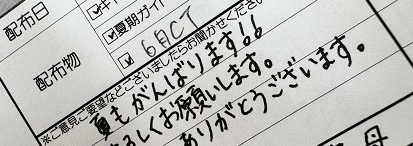 配布日
☑キャ
☑夏期ガイ
配布物
☑ 6ACT
※ご意見ご要望などございましたらお聞かせください
夏もがんばります!!
よろしくお願いします。
ありがとうございます。
母